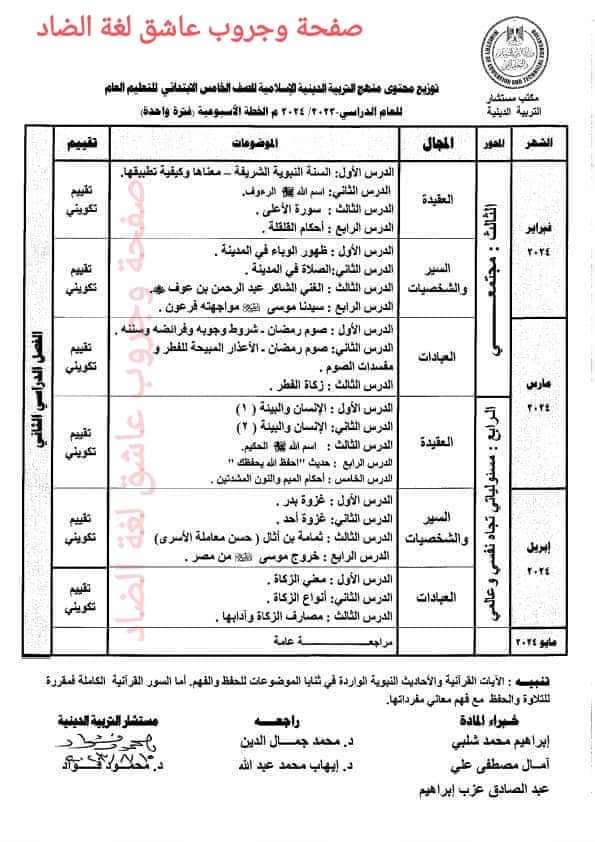 صفحة وجروب عاشق لغة الضاد
MINISTRY OF EDUCATION AND TECHNICAL EDUCATION
مكتب مستشار
التربية الدينية
توزيع محتوى منهج التربية الدينية الإسلامية للصف الخامس الابتدائي للتعليم العام
للعام الدراسي ٢٠٢٣/ ٢٠٢٤ م الخطة الأسبوعية (فترة واحدة)
الشهر المحور المجال الموضوعات تقييم
فبراير
٢٠٢٤
الثالث : مجتمعي
العقيدة
الدرس الأول: السنة النبوية الشريفة – معناها وكيفية تطبيقها.
الدرس الثاني: اسم الله ﷻ الرءوف.
الدرس الثالث : سورة الأعلى .
الدرس الرابع : أحكام القلقلة .
تقييم
تكويني
السير
والشخصيات
الدرس الأول : ظهور الوباء في المدينة .
الدرس الثاني:الصلاة في المدينة .
الدرس الثالث : الغني الشاكر عبد الرحمن بن عوف .
الدرس الرابع : سيدنا موسى مواجهته فرعون .
تقييم
تكويني
مارس
٢٠٢٤
العبادات
الدرس الأول: صوم رمضان ـ شروط وجوبه وفرائضه وسننه .
الدرس الثاني: صوم رمضان ـ الأعذار المبيحة للفطر و
مفسدات الصوم .
الدرس الثالث : زكاة الفطر .
تقييم
تكويني
الرابع : مسئولياتي تجاه نفسي وعالمي
العقيدة
الدرس الأول : الإنسان والبيئة ( ١ )
الدرس الثاني: الإنسان والبيئة ( ٢ )
الدرس الثالث : اسم الله ﷻ الحكيم.
الدرس الرابع : حديث "احفظ الله يحفظك "
الدرس الخامس : أحكام الميم والنون المشددتين .
تقييم
تكويني
إبريل
٢٠٢٤
السير
والشخصيات
الدرس الأول : غزوة بدر .
الدرس الثاني: غزوة أحد .
الدرس الثالث : ثمامة بن أثال ( حسن معاملة الأسرى)
الدرس الرابع : خروج موسى من مصر .
تقييم
تكويني
العبادات
الدرس الأول : معني الزكاة .
الدرس الثاني: أنواع الزكاة .
الدرس الثالث : مصارف الزكاة وآدابها .
تقييم
تكويني
مايو ٢٠٢٤
مراجعة عامة
الفصل الدراسي الثاني
صفحة وجروب عاشق لغة الضاد
تنبيه : الآيات القرآنية والأحاديث النبوية الواردة في ثنايا الموضوعات للحفظ والفهم. أما السور القرآنية الكاملة فمقررة
للتلاوة والحفظ مع فهم معاني مفرداتها.
خبراء المادة راجعه مستشار التربية الدينية
إبراهيم محمد شلبي د. محمد جمال الدين
آمال مصطفى علي د. إيهاب محمد عبد الله د. محمود فؤاد
عبد الصادق عزب إبراهيم